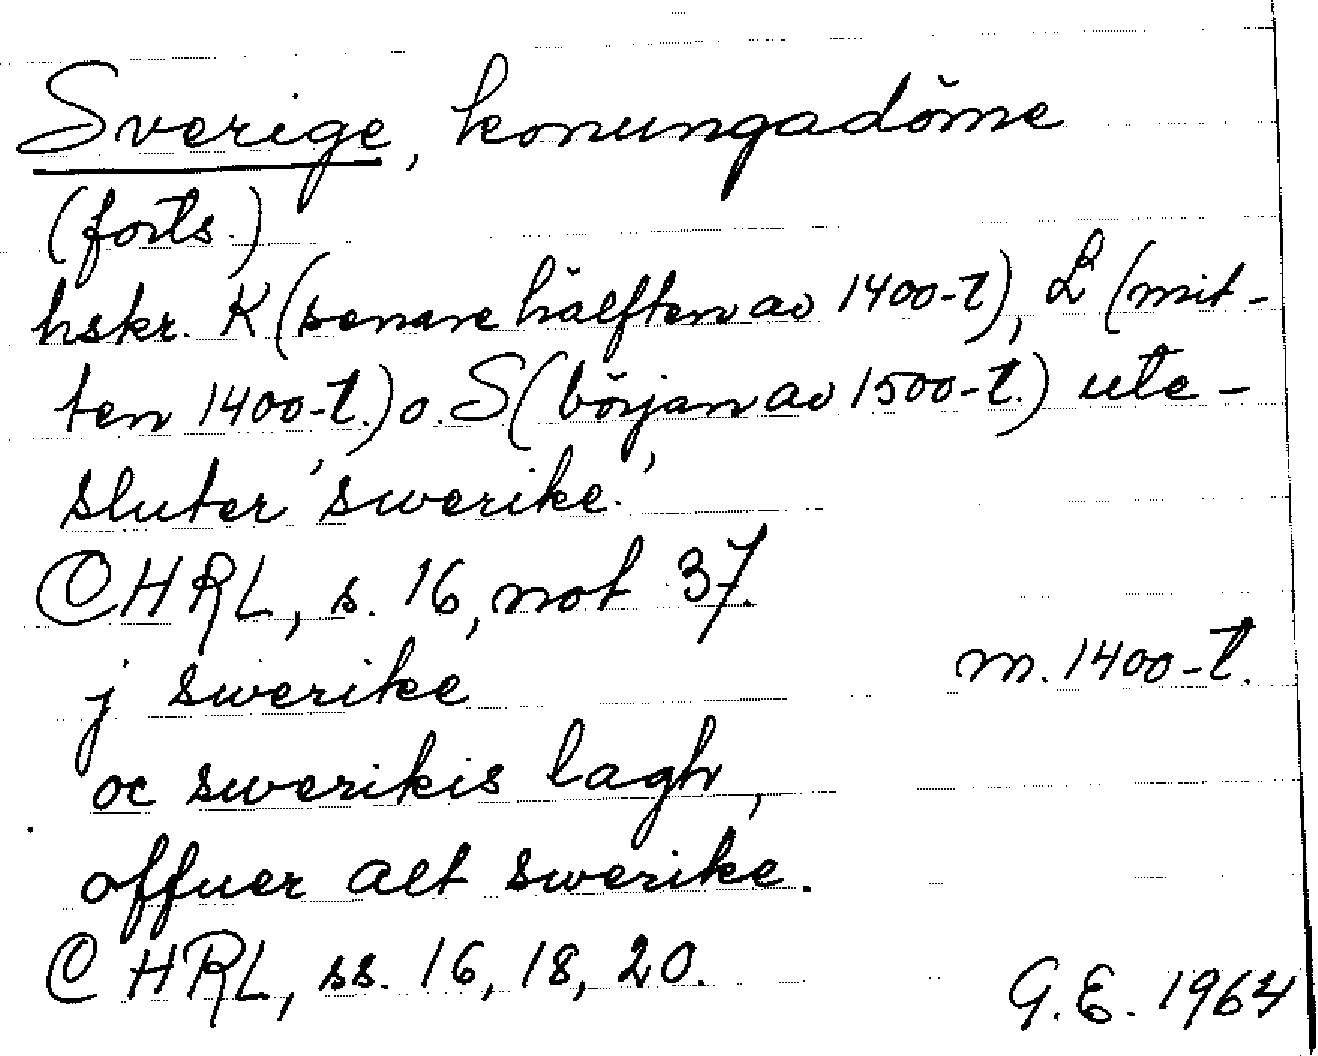 Sverige, konungadöme
(forts.)
hskr. K (senare hälften av 1400-t), L (mit-
ten 1400-t.) o. S (början av 1500-t.) ute-
sluter 'swerike.'
CHRL, s. 16, not 37.
j swerike m. 1400-t.
oc swerikis lagh,
offuer alt swerike.
CHRL, ss. 16, 18, 20. G.E. 1964